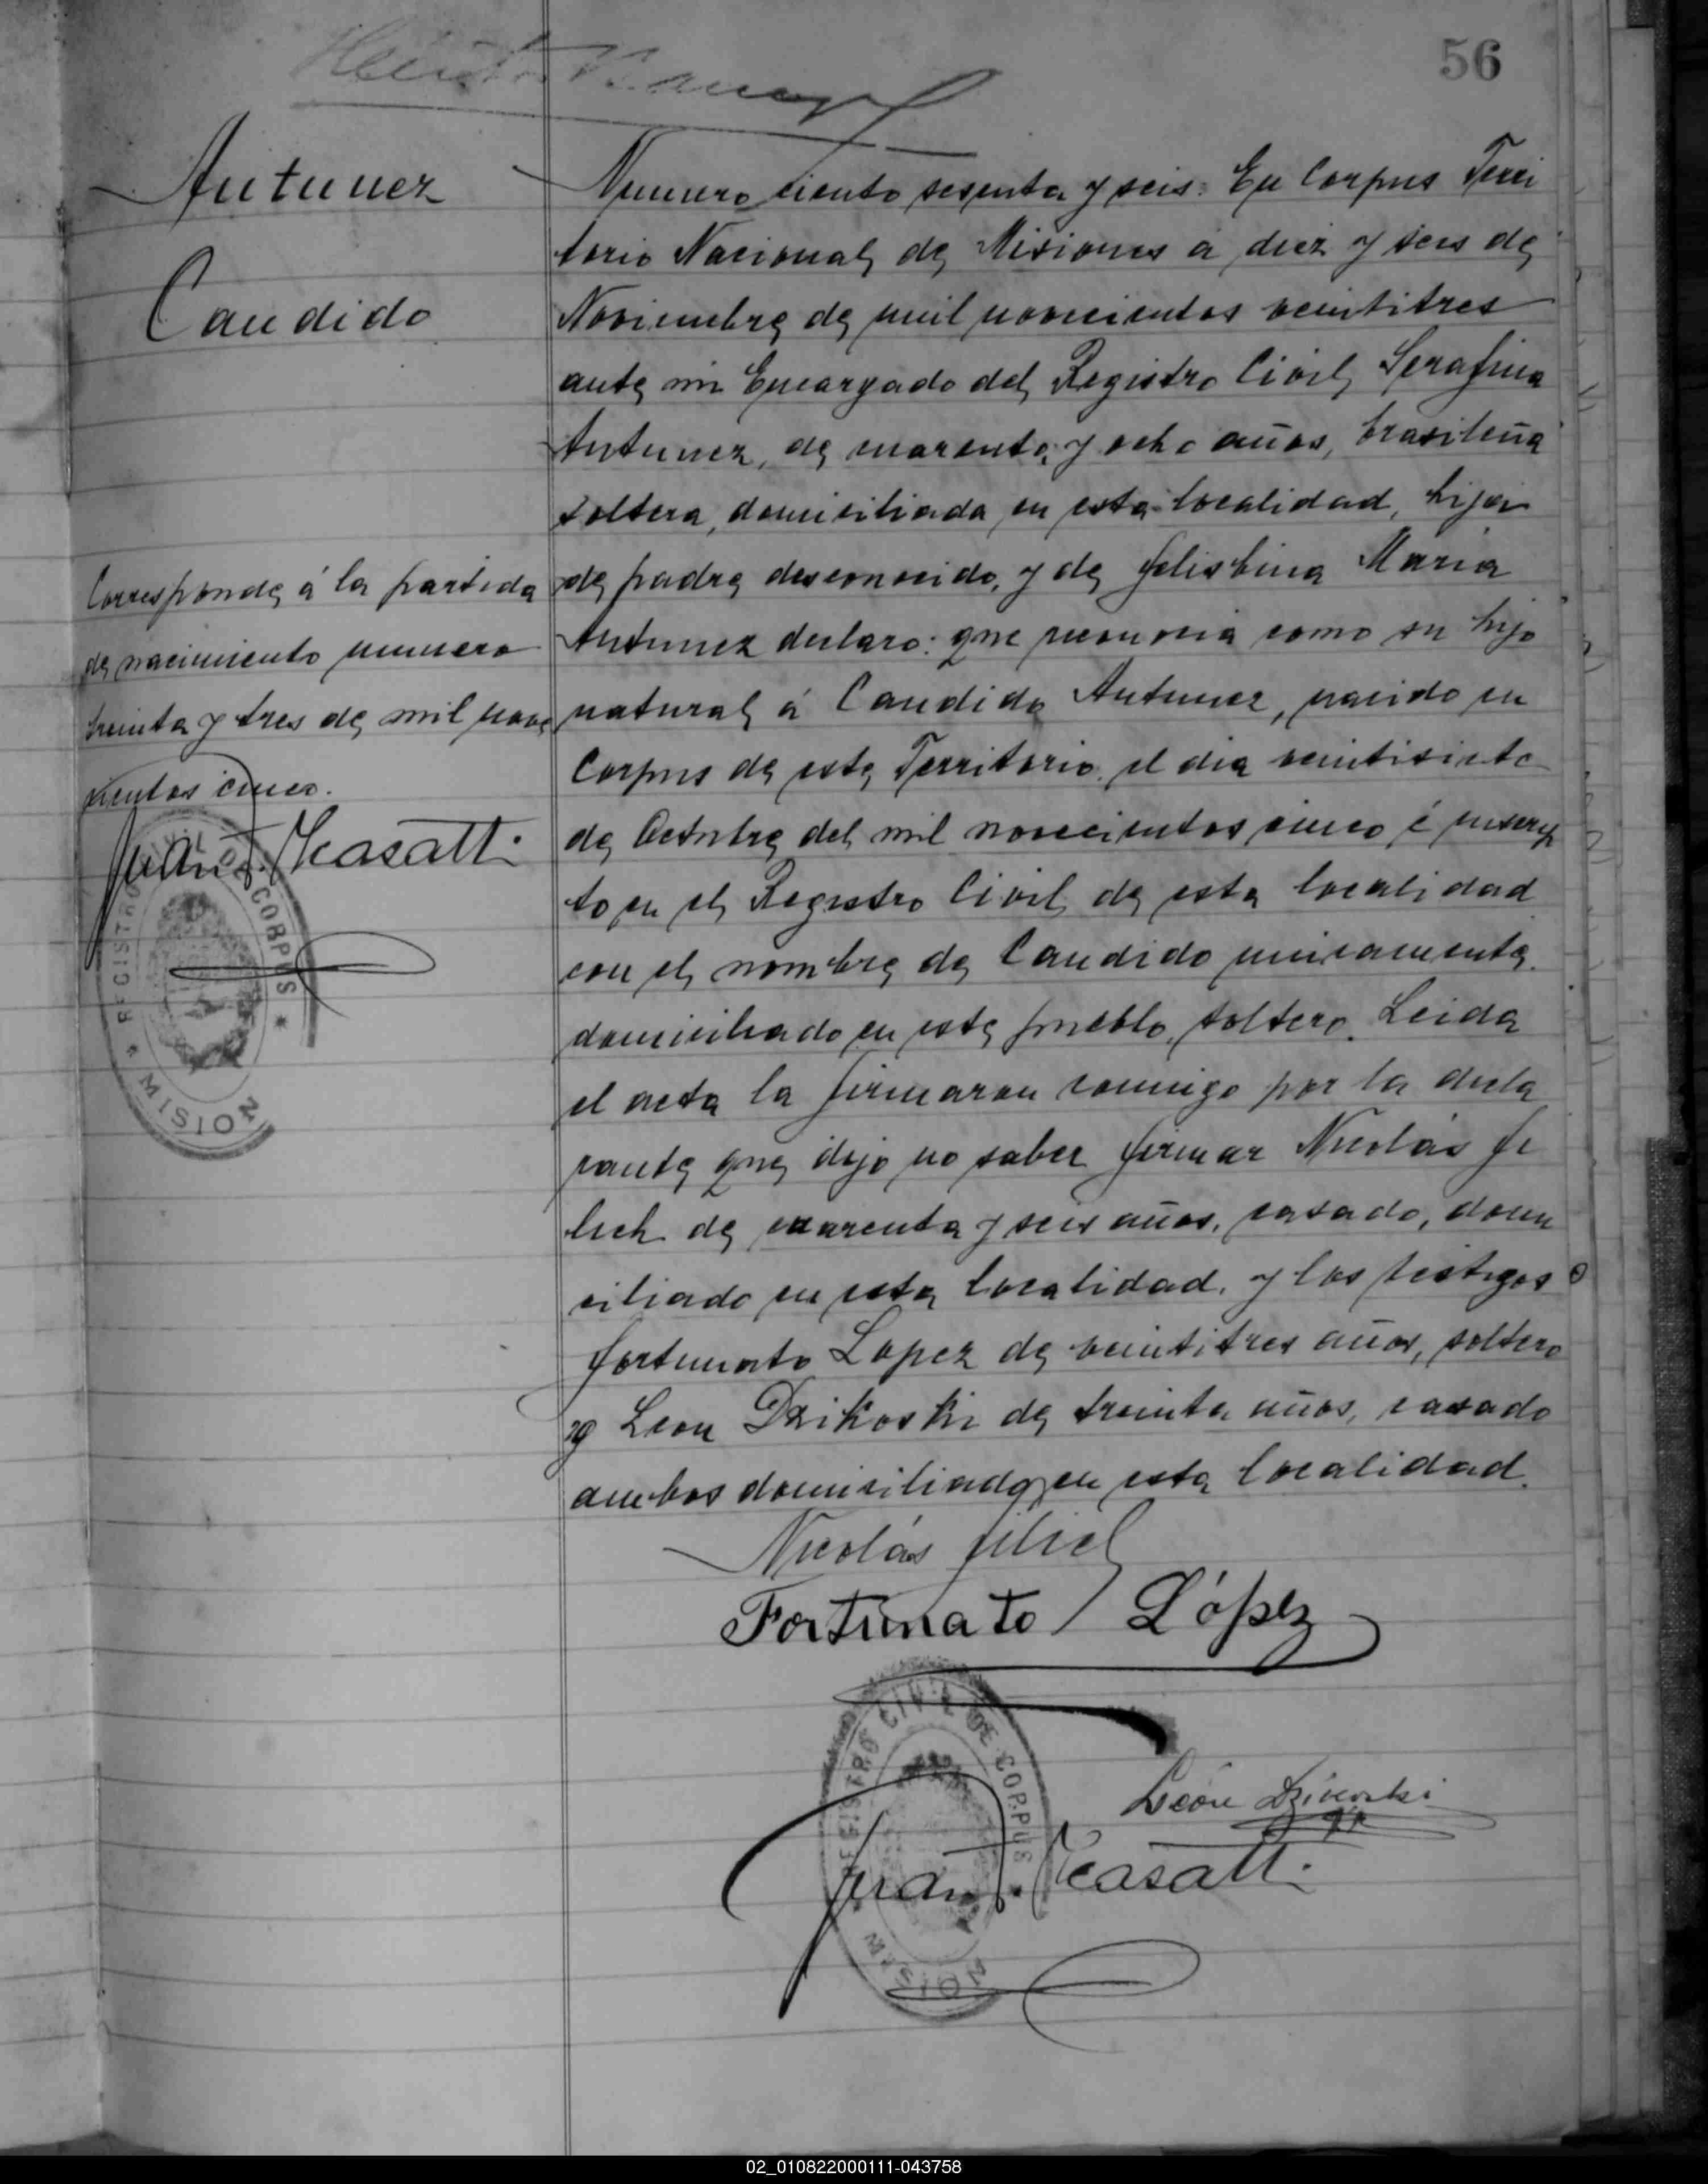 56
Antunez
Candido
Numero ciento sesenta y seis. En Corpus Terri
torio Nacional de Misiones á diez y seis de
Noviembre de mil novecientos veintitres
ante mi Encargado del Registro Civil, Serafina
Antunez, de cuarenta y ocho años, brasileña
soltera, domiciliada en esta localidad, hija
de padre desconocido, y de Felisbina Maria
Antunez declaro: que reconocia como su hijo
natural á Candido Antunez, nacido en
Corpus de este Territorio, el dia veintisiete
de Octubre del mil novecientos cinco é inscrip
to en el Registro Civil de esta localidad
con el nombre de Candido unicamente.
domiciliado en este pueblo, soltero. Leida
el acta la firmaron conmigo por la decla
rante que dijo no saber firmar Nicolás Fe
lich de cuarenta y seis años, casado, domi
ciliado en esta localidad, y los testigos
Fortunato Lopez de veintitres años, soltero
y Leon Dzikoski de treinta años, casado
ambos domiciliados en esta localidad.
Corresponde á la partida
de nacimiento numero
treinta y tres de mil nove
cientos cinco.
Juan J. Kasatti
REGISTRO CIVIL DE CORPUS
MISION
Nicolás Filich
Fortunato López
León
REGISTRO CIVIL DE CORPUS
Juan J. Kasatti
MISION
02_010822000111-043758